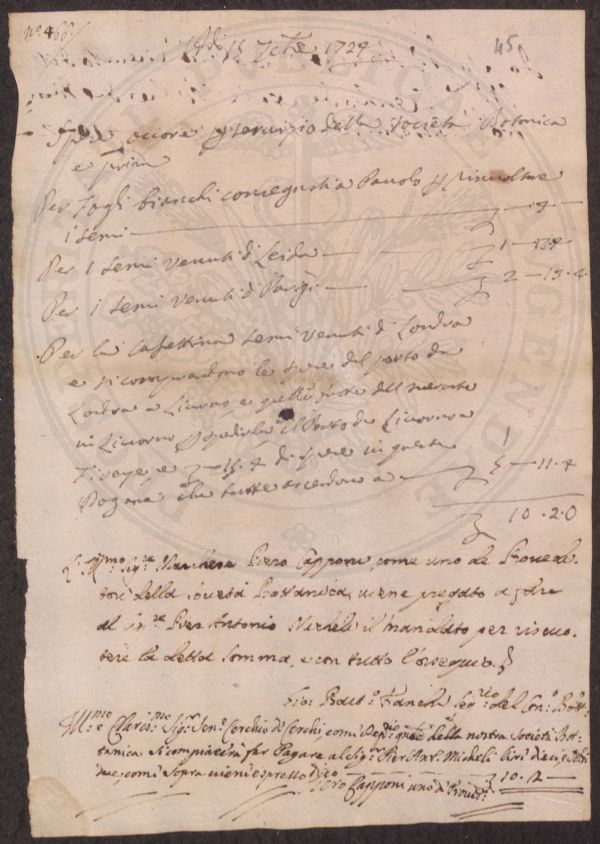 n.º 468
45
Adi 15 7cbre 1724
Spese occorse per servizio della Società Botanica
e prima
Per Fogli bianchi consegnati a Pauolo p rinuoltare
i semi — 9
Per i semi venuti di Leida — 1 — 13.4
Per i semi venuti di Parigi — 2 — 15.4
Per la Cassettina semi venuti di Londra
e si comprendono le spese del porto da
Londra a Livorno, e quelle fatte del
in Livorno p spedirla il Porto da Livorno a
e — 15.4 di spese in questa
Dogana che tutte ascendono a — 5 — 11.4
10.2.0
Ill.mo Sig.re Marchese Piero Capponi, come uno de Proued
tori della Società Bottanica, viene pregato a fare
al Sig.re Pier Antonio Micheli il mandato per riscuo
tere la detta somma, e con tutto l'ossequio.
Gio: Batt.o Seg.rio del
Ill.mo e Clariss.mo Sig.r Sen.r Cerchio de Cerchi come della nostra Società Bot
tanica si compiacerà far Pagare al Sig.r Pier Ant.o Micheli lire dieci e soldi
due, come sopra vien espresso dico — 10.2 —
Piero Capponi uno de Proued.ri